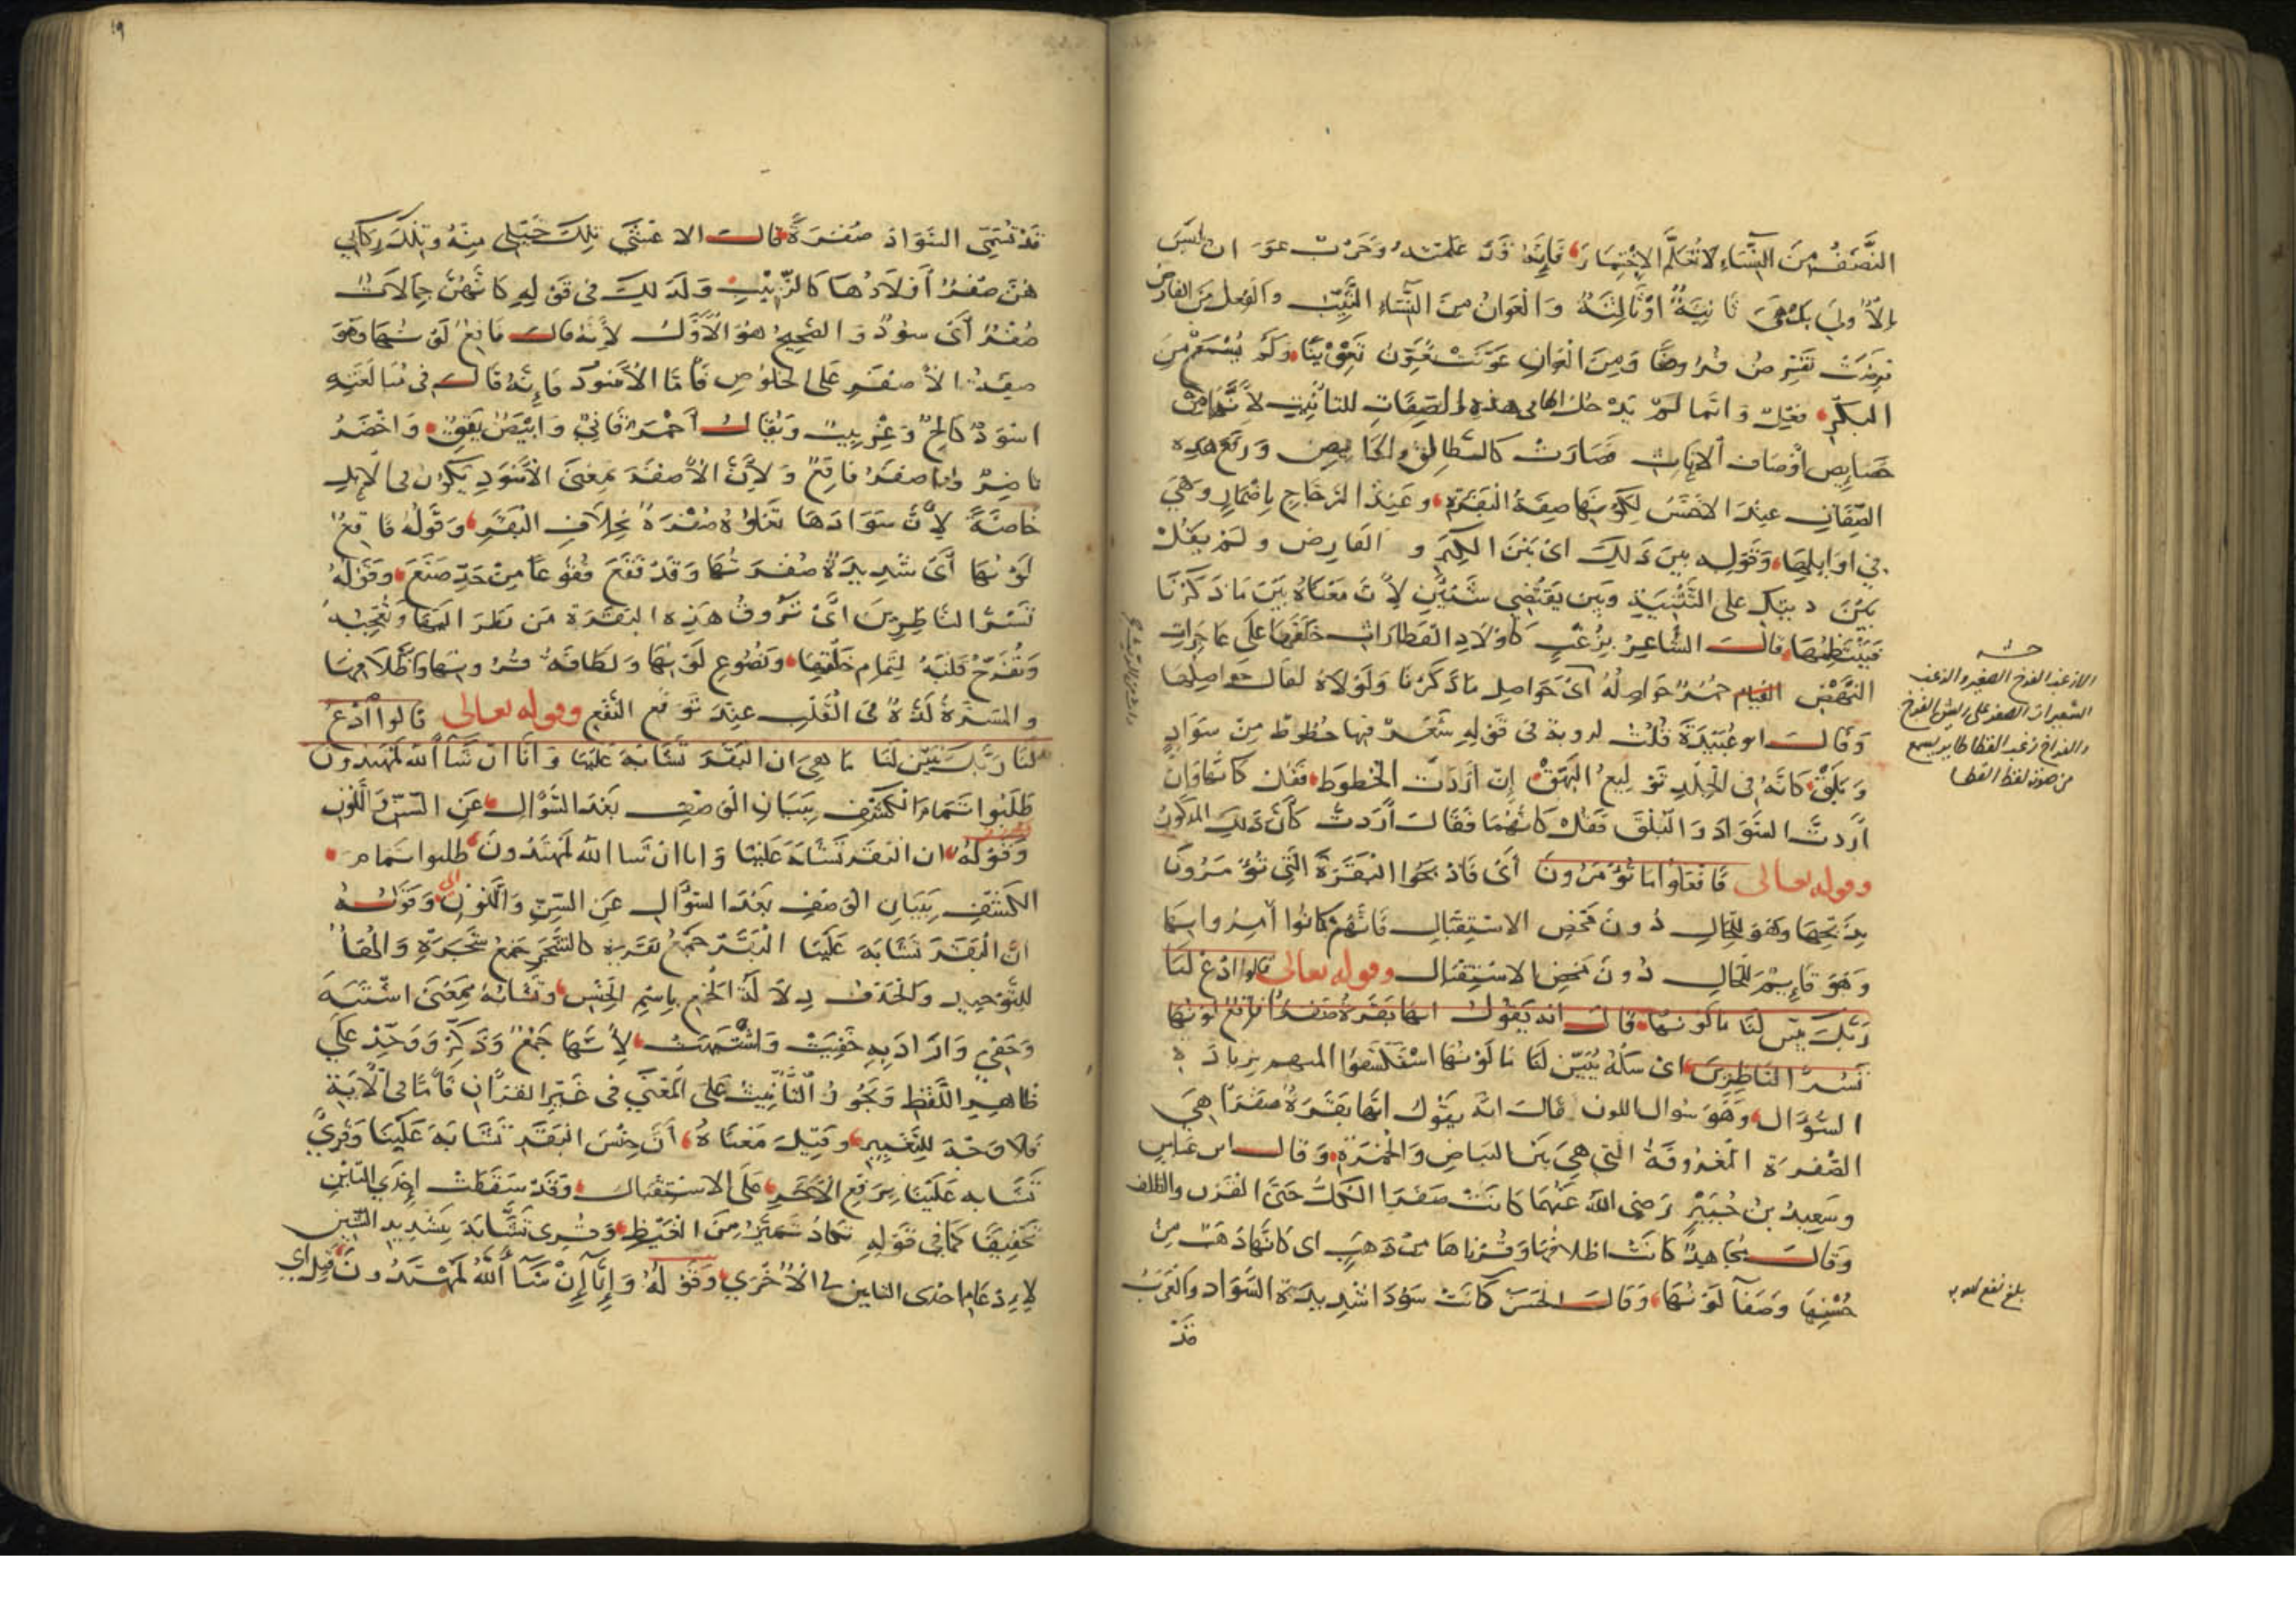 النَّصَفُ مِنَ النِّسَاءِ لا تُعَلَّمُ الاِخْتِمَارَ فَإِنَّهَا قَدْ عَلِمَتْهُ وَحَرْبٌ عَوَانٌ لَيْسَتْ
بِالأُولَى بَلْ هِيَ ثَانِيَةٌ اوْ ثَالِثَةٌ وَالْعَوَانُ مِنَ النِّسَاءِ الثَّيِّبُ وَالْفِعْلُ مِنَ الفَارِضِ
فَرَضَتْ تَفْرِضُ فُرُوضًا وَمِنَ الْعَوَانِ عَوَّنَتْ تُعَوِّنُ تَعْوِينًا وَلَمْ يُسْمَعْ مِنَ
البِكْرِ فِعْلٌ وَانَّمَا لَمْ يَدْخُلْ الهَا فِي هذِهِ الصِّفَاتِ للتأنِيثِ لأَنَّهَا مِنْ
خَصَايِصِ أَوْصَافِ الإِنَاثِ فَصَارَتْ كَالطَّالِقِ وَالحَايِضِ وَرَفْعُ هذِهِ
الصِّفَاتِ عِنْدَ الاخْفَشِ لِكَوْنِهَا صِفَةُ الْبَقَرَةِ وَعِنْدَ الزجَّاجِ بِاضْمَارِ وَهِيَ
فِي اوَايِلِهَا وَقَوْلِهِ بَيْنَ ذَلِكَ اىْ بَيْنَ البِكْرِ وَالفَارِضِ وَلَمْ يَقُلْ
بَيْنَ ذَيْنِكَ على التَّثْنِيَةِ وَبَيْن يَقْتَضِي شَيْئَيْنِ لأَنَّ مَعْنَاهُ بَيْنَ مَا ذَكَرْنَا
قَالَ الشَّاعِرُ بِزُغْبٍ كَأَوْلاَدِ القَطَا رَاثَ خَلْفُهَا عَلَى عَاجِزَاتِ
النَّهْضِ حُمْرٌ حَوَاصِلُهْ اىْ حَوَاصِلِ مَا ذَكَرْنَا وَلَوْلاَهُ لَقَالَ حَوَاصِلُهَا
وَقَالَ ابو عُبَيْدَةَ قُلْتُ لِرُوبَةَ فِي قَوْلِهِ شَعْرٌ فِيهَا خُطُوطٌ مِنْ سَوَادٍ
وَبَلَقْ كَانَّهُ فِي الْجِلْدِ تَوْلِيعُ البَهَقْ إِنْ ارَدْتَ الْخطُوطَ فَقُلْ كَانَّهَا وَإِنْ
أَرَدتَّ السَّوَادَ وَالْبَلَقَ فَقُلْ كَانَّهُمَا فَقَالَ أَرَدتُ كَأَنَّ ذَلِكَ المَذْكُورَ
وقوله تعالى فَافْعَلُوا مَا تُؤْمَرُونَ أَىْ فَاذْبَحُوا الْبَقَرَةَ الَّتِي تُؤْمَرُونَ
بِذَبْحِهَا وَهُوَ لِلْحَالِ دُونَ مَحْضِ الاسْتِقْبَالِ فَانَّهُمْ كَانُوا أُمِرُوا بِهَا
وَهُوَ قَايِمٌ لِلْحَالِ دُونَ مَحْضِ الاسْتِقْبَالِ وقوله تعالى قَالُوا ادْعُ لَنَا
رَبَّكَ يُبَيِّن لَّنَا مَا لَوْنُهَا قَالَ انه يَقُولُ انها بَقَرَةٌ صَفْرَاءُ فَاقِعٌ لَوْنُهَا
تَسُرُّ النَّاظِرِينَ اىْ سَلْهُ يُبَيِّنْ لَنَا مَا لَوْنُهَا اسْتَكْشَفُوا المبهم بِزِيادَةِ
السُّؤَالِ وَهُوَ سُوالُ اللون قَالَ انَّهُ يَقُولُ انَّهَا بَقَرَةٌ صَفْرَا هِيَ
الصُّفْرَةُ الْمَعْرُوفَةُ التِي هِيَ بَيْنَ البَيَاضِ وَالْحُمْرَةِ وَقَالَ ابن عَبَاسٍ
وَسَعِيدُ بْنُ جُبَيْرٍ رَضِي اللهُ عَنْهُمَا كَانَتْ صَفْرَا الكُلِّ حَتَّى القَرْنِ وَالظِّلفِ
وَقَالَ مُجَاهِدٌ كَانَتْ اظلافُهَا وَقُرْنَاهَا مِنْ ذَهَبٍ اى كَانَّهَا ذَهَبٌ مِنْ
حُسْنِهَا وَصَفَآ لَوْنِهَا وَقَالَ الْحَسَنُ كَانَتْ سَوْدَا شَدِيدَةَ السَّوَادِ وَالْعَرَبُ
قَدْ
حاشيه
الازغب الفرخ الصغير والزغب
الشعيرات الصفر على ريش الفرخ
بلغ
١٩
قَدْ تُسَمِّى السَّوَادَ صُفْرَةً قَالَ الاعْشَى تِلْكَ خَيْلِى مِنْهُ وَتِلْكَ رِكَابِي
هُنَّ صُفْرٌ أَوْلاَدُهَا كَالزَّبِيْبِ وَلَذلِكَ فِي قَوْلِهِ كَانَّهُنَّ جِمَالاَتٌ
صُفْرٌ أَىْ سُودٌ وَالصَّحِيحُ هُوَ الأَوَّلُ لأَنَّهُ قَالَ فَاقِعٌ لَوْنُهَا وَهُوَ
صِفَةُ الأَصْفَرِ عَلَى الخُلُوصِ فَأَمَّا الأَسْوَدُ فَإِنَّهُ قَالَ فِي مُبَالَغَتِهِ
اسْوَدُ كَالِحٌ وَغِرْبِيبٌ وَيُقَالُ أَحْمَرُ قَانِيٌ وَابْيَضُ يَقَقٌ وَاخْضَرُ
نَاضِرٌ وَاصفَرُ فَاقِعٌ وَلأَنَّ الأَصْفَرَ بِمَعْنَى الأَسْوَدِ يَكُونُ فِي الإِبِلِ
خَاصَّةً لأَنَّ سَوَادَهَا تَعْلُوهُ صُفْرَةٌ بِخِلاَفِ البَقَرِ وَقَوْلُهُ فَاقِعٌ
لَوْنُهَا أَىْ شَدِيدَةٌ صُفْرَتُهَا وَقَدْ فَقَعَ فُقُوعًا مِنْ حَدِّ صَنَعَ وَقَوْلُهُ
تَسُرُّ النَّاظِرِينَ اىْ تَرُوقُ هَذِهِ البَقَرَةُ مَن نَظَرَ الَيْهَا وَتُعْجِبُهُ
وَتُفَرِّحُ قَلْبَهُ لِتَمَامِ خَلْقِهَا وَنُصُوعِ لَوْنِهَا وَلَطَافَةِ قُرُونِهَا وَاظْلاَفِهَا
وَالمَسَرَّةُ لَذَّةٌ فِي الْقَلْبِ عِنْدَ تَوَقُّعِ النَّفْعِ وقوله تعالى قَالُوا ادْعُ
لَنَا رَبَّكَ يُبَيِّنْ لَنَا مَا هِيَ ان البَقَرَ تَشَابَهَ عَلَيْنَا وَانَّا ان شَآ اللهُ لَمُهْتَدُونَ
طَلَبُوا تَمَامَ الْكَشْفِ بِبَيَانِ الْوَصْفِ بَعْدَ السُّؤَالِ عَنِ السِّنِّ وَاللَّوْنِ
وَقَوْلُهُ ان البَقَرَ تَشَابَهَ عَلَيْنَا وَانا ان شَا اللهُ لَمُهْتَدُونَ طلبوا تمام
الكَشْفِ بِبَيَانِ الوَصْفِ بَعْدَ السُّؤَالِ عَنِ السِّنِّ وَاللَّوْنِ الى وَقَوْلُهُ
انَّ الْبَقَرَ تَشَابَهَ عَلَيْنَا الْبَقَرُ جَمْعُ بَقَرَةٍ كالشَّجَرِ جَمْعُ شَجَرَةٍ وَالْهَا
لِلتَّوْحِيدِ وَالْحَذْفُ دِلاَلَةُ الْجَمْعِ بِاسْمِ الْجِنْسِ وَتَشَابَهَ بِمَعْنَى اشْتَبَهَ
وَخَفِيَ وَارَادَ بِهِ خَفِيَتْ وَاشْتَبَهَتْ لأَنَّهَا جَمْعٌ وَذَكَّرَ وَوَحَّدَ عَلَى
ظَاهِرِ اللَّفْظِ وَيَجُوزُ التَّأْنِيثُ عَلَى المَعْنَى فِي غَيْرِ القرانِ فَأَمَّا فِي الآيَةِ
فَلاَ وَجْهَ لِلتَّغْيِيرِ وَقِيلَ مَعْنَاهُ أَنَّ جِنْسَ البَقَرِ تَشَابَهَ عَلَيْنَا وَقُرِئَ
تَشَابَهُ عَلَيْنَا بِرَفْعِ الآخِرِ عَلَى الاسْتِقْبَالِ وَقَدْ سَقَطَتْ إِحْدَى التَّائَيْنِ
تَخْفِيفًا كَمَا فِي قَوْلِهِ تَكَادُ تَمَيَّزُ مِنَ الْغَيْظِ وَقُرِى تَشَّابَهُ بِتَشْدِيدِ الشِّينِ
لإِدْغَامِ احْدَى التاءين فِي الأُخْرَى وَقَوْلُهُ وَإِنَّا إِنْ شَآ اللهُ لَمُهْتَدُونَ قِيلَ اي